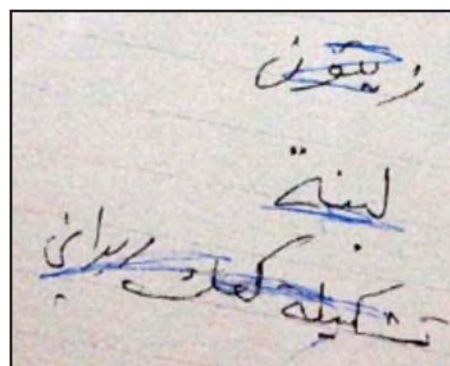 زيتون
لبنة
تشكيلة كعك